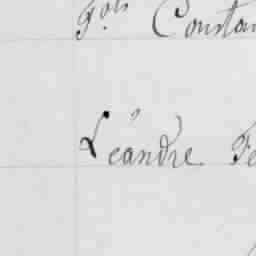 Fçois Constan
Léandre Fe